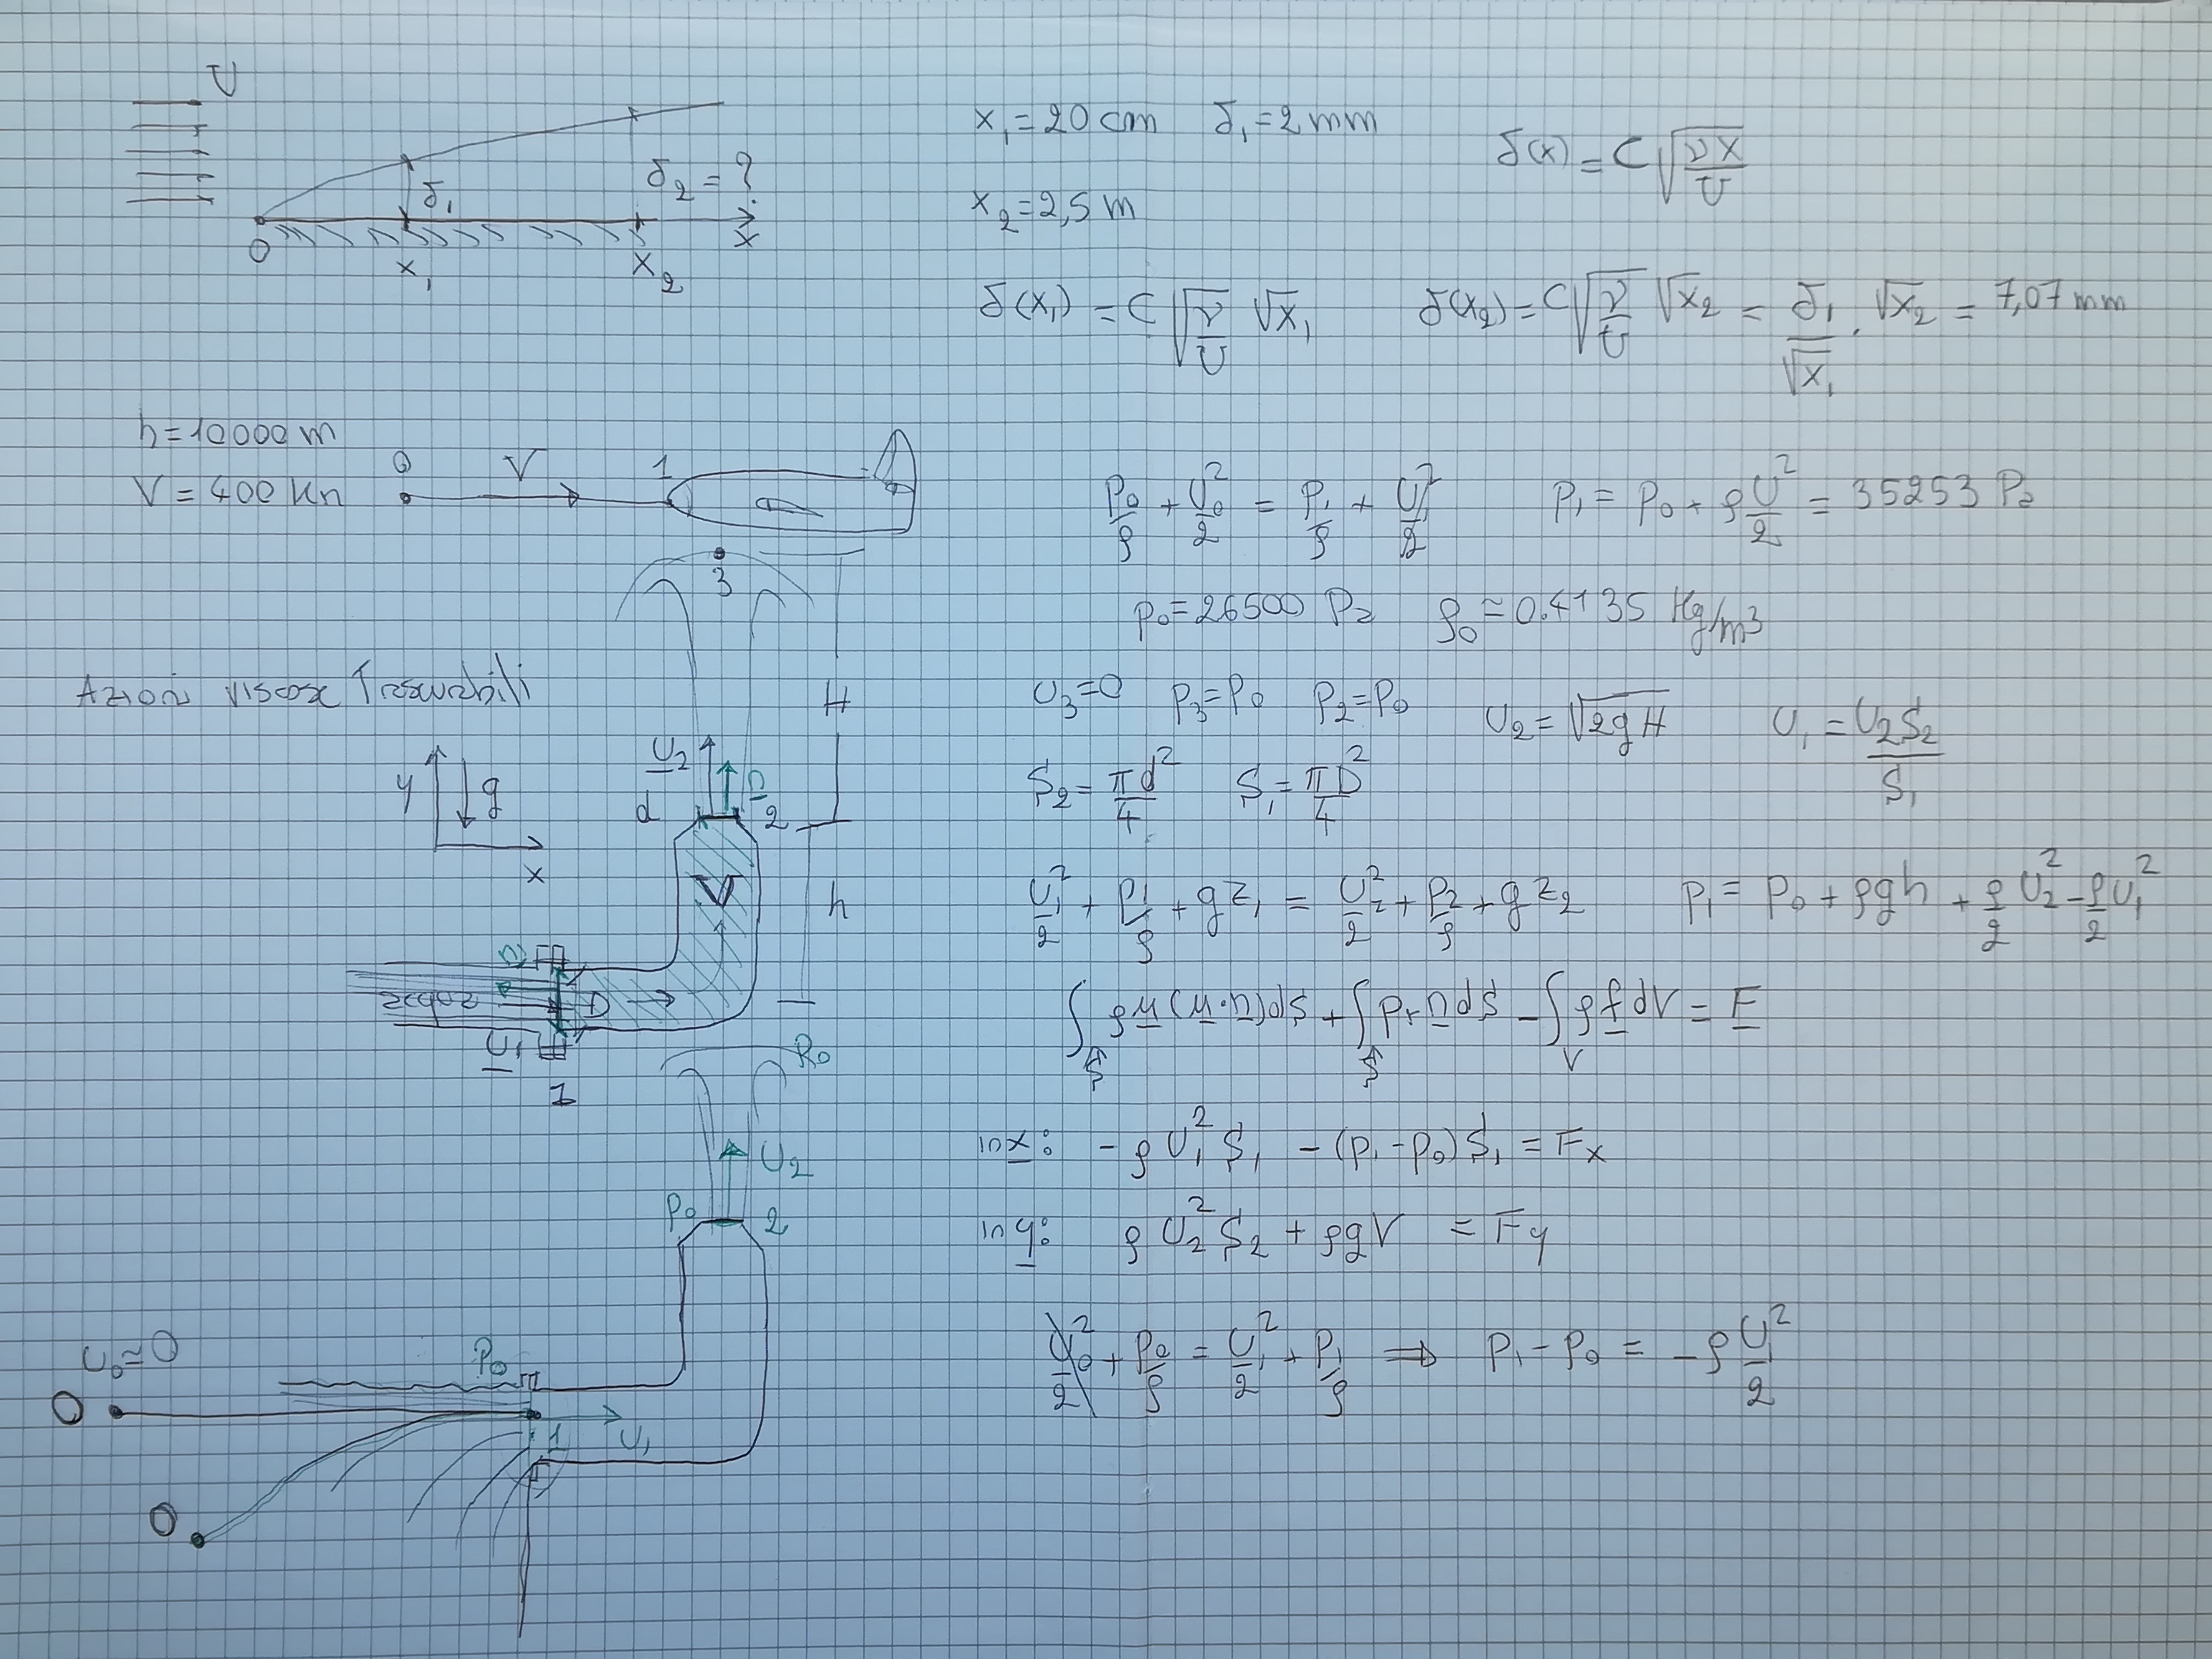 U
x₁ = 20 cm δ₁ = 2 mm
δ(x) = C √(νx/U)
δ₁ δ₂ = ?
x₂ = 2,5 m
O x₁ x₂ x
δ(x₁) = C √(ν/U) √x₁ δ(x₂) = C √(ν/U) √x₂ = δ₁/√x₁ · √x₂ = 7,07 mm
h = 10000 m
V = 400 Kn
0 V 1
p₀/ρ + U₀²/2 = p₁/ρ + U₁²/2 p₁ = p₀ + ρ U²/2 = 35253 Pa
3
p₀ = 26500 Pa ρ₀ ≈ 0.4135 Kg/m³
Azioni viscose Trascurabili
H
U₃ = 0 p₃ = p₀ p₂ = p₀ U₂ = √(2gH) U₁ = U₂S₂/S₁
y g x
U₂ n d 2
S₂ = πd²/4 S₁ = πD²/4
V h
U₁²/2 + p₁/ρ + gz₁ = U₂²/2 + p₂/ρ + gz₂ p₁ = p₀ + ρgh + ρ/2 U₂² - ρ/2 U₁²
n
acqua D
U₁
1
∫_S ρu(u·n)dS + ∫_S pr n dS - ∫_V ρf dV = F
in x: - ρU₁²S₁ - (p₁ - p₀)S₁ = Fx
U₂
p₀ 2
in y: ρU₂²S₂ + ρgV = Fy
U₀²/2 + p₀/ρ = U₁²/2 + p₁/ρ ⇒ p₁ - p₀ = -ρ U₁²/2
U₀ ≈ 0 p₀
0
1 U₁
0